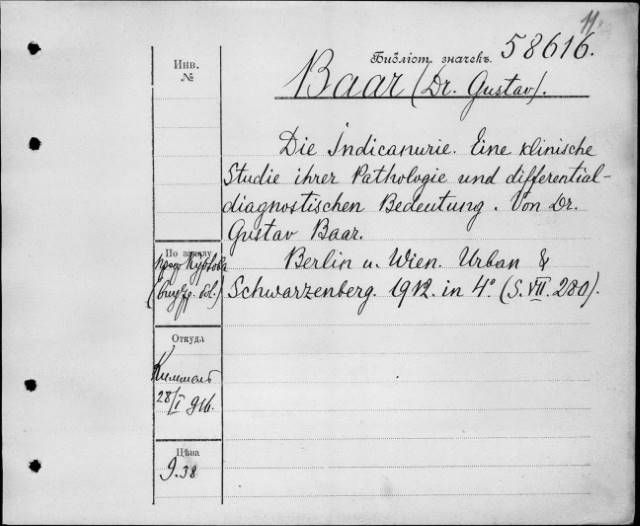 11.
Инв.
№
Библіот. значекъ. 58616.
Baar (Dr. Gustav).
Die Indicanurie. Eine klinische
Studie ihrer Pathologie und differential-
diagnostischen Bedeutung. Von Dr.
Gustav Baar.
Berlin u. Wien. Urban &
Schwarzenberg. 1912. in 4° (S. VII. 280).
По заказу
Откуда
Киммель
28/I 916.
Цѣна
9.38